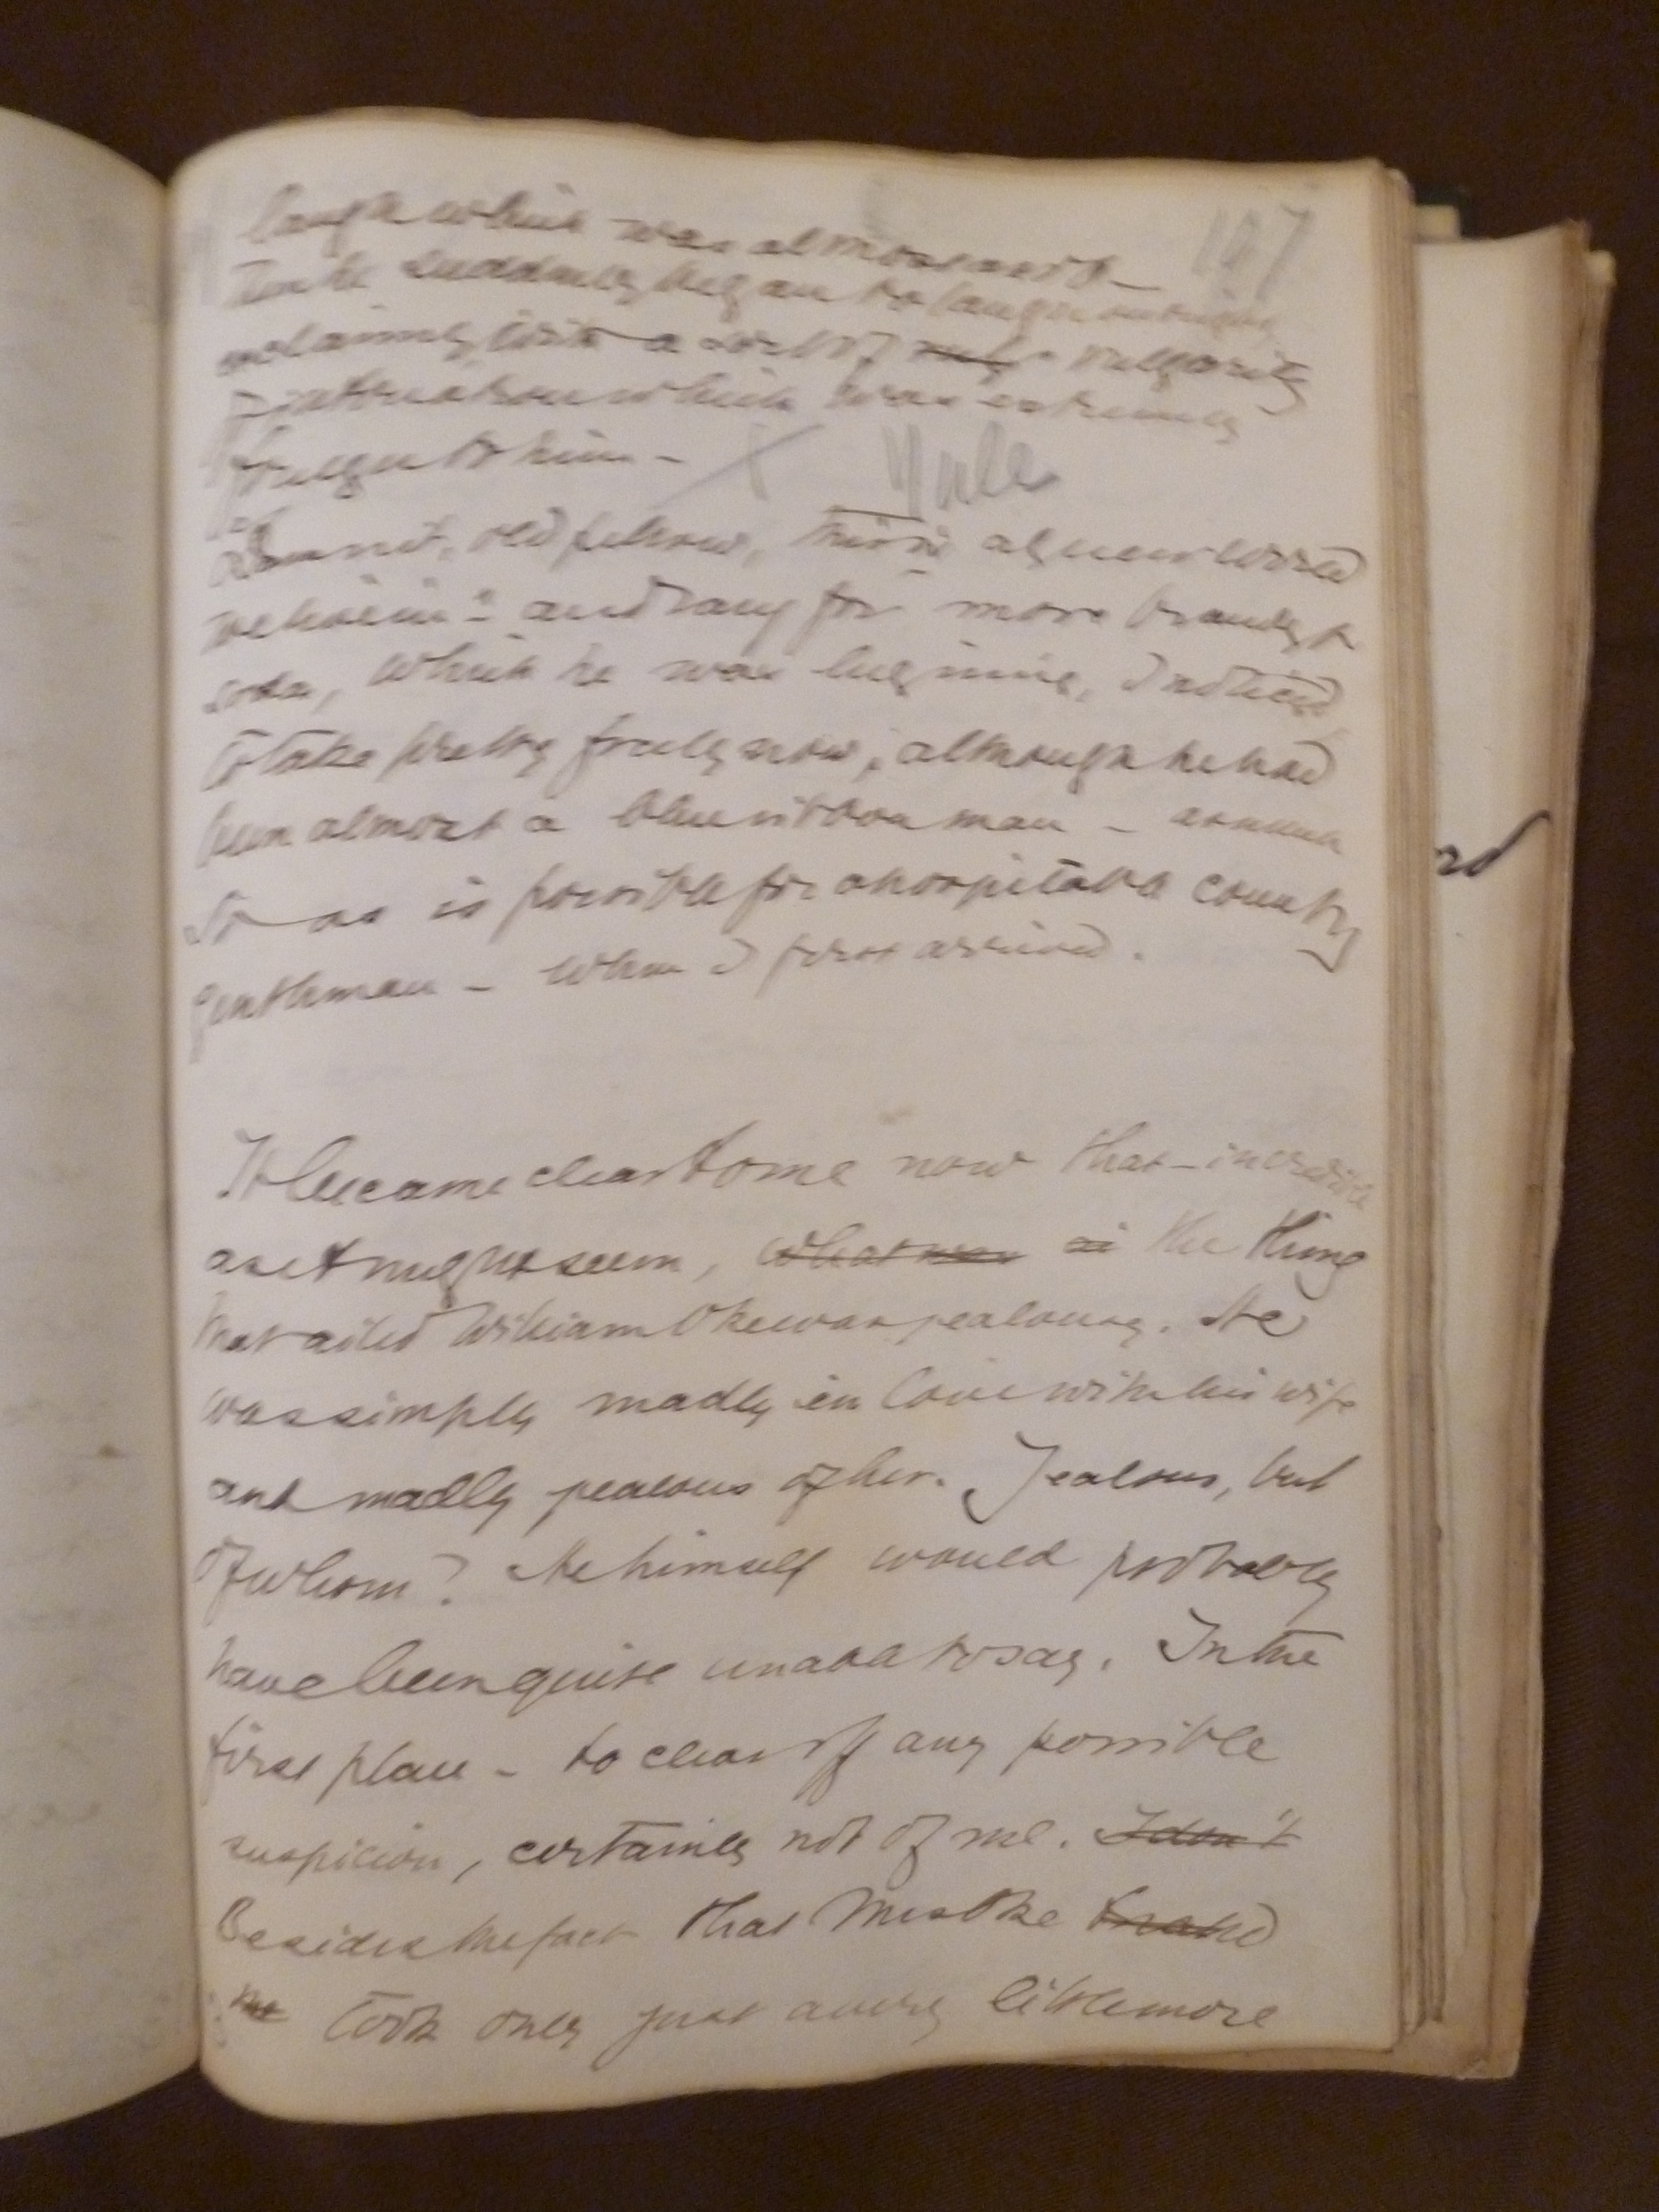 147
laugh which was almost a sob.
Then he suddenly began to laugh outright
exclaiming, with a sort of vulgarity
of intonation which was extremely
foreign to him -
x Yule
"Damn it, old fellow, this is a queer world
we live in" - and rang for more brandy &
soda, which he was begining, I noticed,
to take pretty freely now, although he had
been almost a blue ribbon man - as much
so as is possible for a hospitable country
gentleman - when I first arrived.
It became clear to me now that - incredible
as it might seem, what was is the thing
that ailed William Oke was jealousy. He
was simply madly in love with his wife
and madly jealous of her. Jealous, but
of whom? He himself would probably
have been quite unable to say. In the
first place - to clear off any possible
suspicion, certainly not of me. I don't
Besides the fact that Mrs Oke
me took only just a very little more
rd